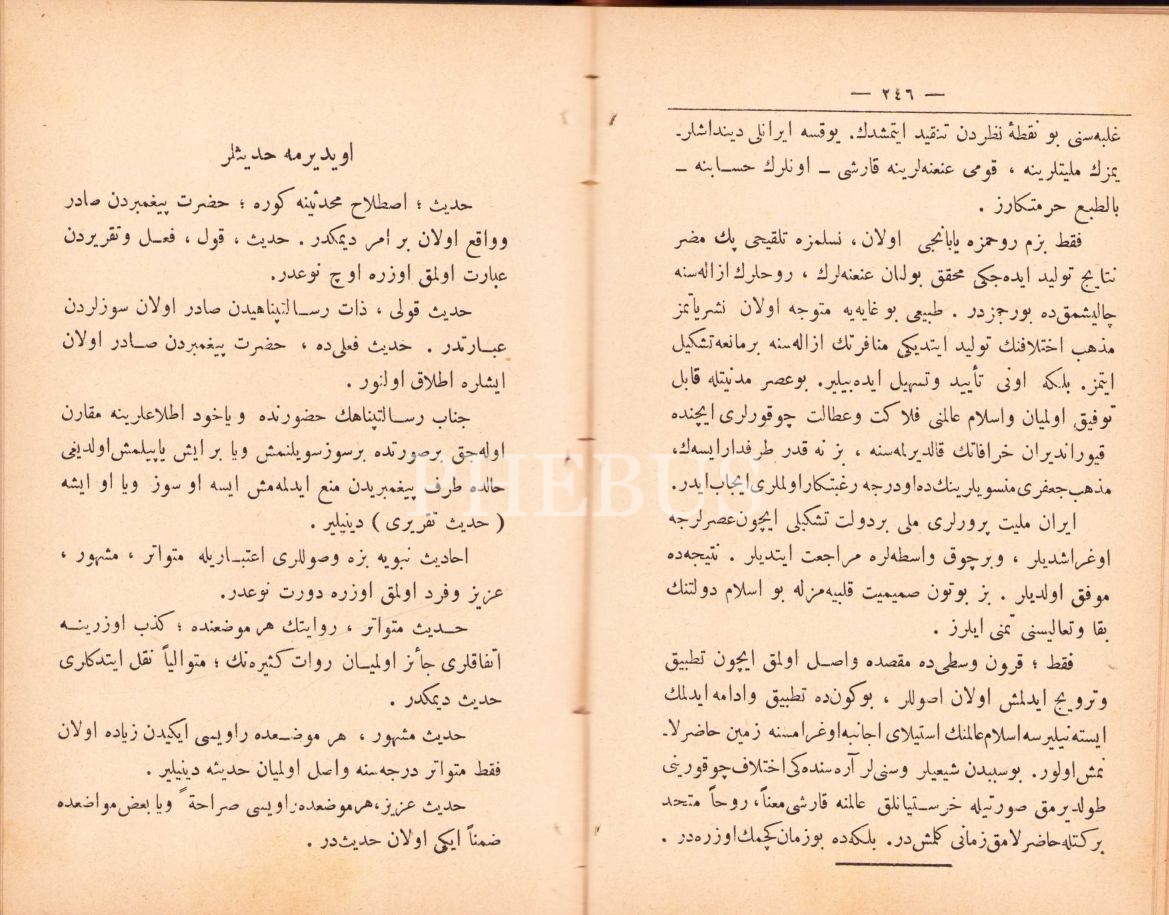 — ٢٤٦ —
غلبه‌سنی بو نقطۀ نظردن تنقید ایتمشدك. یوقسه ایرانلی دینداشلر-
یمزك ملیتلرینه ، قومی عنعنه‌لرینه قارشی ــ اونلرك حسابنه ــ
بالطبع حرمتكارز .
فقط بزم روحمزه یابانجی اولان ، نسلمزه تلقیحی پك مضر
نتایج تولید ایده‌جكی محقق بولنان عنعنه‌لرك ، روحلرك ازاله‌سنه
چالیشمق‌ده بورجمزدر . طبیعی بو غایه‌یه متوجه اولان نشریاتمز
مذهب اختلافنك تولید ایتدیكی منافرتك ازاله‌سنه برمانعه تشكیل
ایتمز. بلكه اونی تأیید وتسهیل ایده‌بیلیر. بوعصر مدنیتله قابل
توفیق اولمیان واسلام عالمنی فلاكت وعطالت چوقورلری ایچنده
قیوراندیران خرافاتك قالدیرلمه‌سنه ، بز نه قدر طرفدارایسه‌ك،
مذهب جعفری منسوبلرینك‌ده اودرجه رغبتكار اولملری ایجاب ایدر.
ایران ملیت پرورلری ملی بردولت تشكیلی ایچون عصرلرجه
اوغراشدیلر ، وبرچوق واسطه‌لره مراجعت ایتدیلر . نتیجه‌ده
موفق اولدیلر . بز بوتون صمیمیت قلبیه‌مزله بو اسلام دولتنك
بقا وتعالیسنی تمنی ایلرز .
فقط ؛ قرون وسطی‌ده مقصده واصل اولمق ایچون تطبیق
وترویج ایدلمش اولان اصوللر ، بوكون‌ده تطبیق وادامه ایدلمك
ایسته‌نیلیرسه اسلام عالمنك استیلای اجانبه اوغرامسنه زمین حاضرلا-
نمش اولور. بوسببدن شیعیلر وسنی‌لر آره‌سنده‌كی اختلاف چوقورینی
طولدیرمق صورتیله خرستیانلق عالمنه قارشی معناً، روحاً متحد
بركتله حاضرلامق زمانی كلمش‌در. بلكه‌ده بوزمان كچمك اوزره‌در .
اویدیرمه حدیثلر
حدیث ؛ اصطلاح محدثینه كوره ؛ حضرت پیغمبردن صادر
وواقع اولان بر امر دیمكدر . حدیث ، قول ، فعل وتقریردن
عبارت اولمق اوزره اوچ نوعدر.
حدیث قولی ، ذات رسالتپناهیدن صادر اولان سوزلردن
عبارتدر . حدیث فعلی‌ده ، حضرت پیغمبردن صادر اولان
ایشلره اطلاق اولنور .
جناب رسالتپناهك حضورنده ویاخود اطلاعلرینه مقارن
اوله‌جق برصورتده برسوزسویلنمش ویا بر ایش یاپیلمش اولدیغی
حالده طرف پیغمبریدن منع ایدلمه‌مش ایسه او سوز ویا او ایشه
( حدیث تقریری ) دینیلیر .
احادیث نبویه بزه وصوللری اعتباریله متواتر ، مشهور ،
عزیز وفرد اولمق اوزره دورت نوعدر.
حدیث متواتر ، روایتك هر موضعنده ؛ كذب اوزرینه
اتفاقلری جائز اولمیان روات كثیره‌نك ؛ متوالیاً نقل ایتدكلری
حدیث دیمكدر .
حدیث مشهور ، هر موضعده راویسی ایكیدن زیاده اولان
فقط متواتر درجه‌سنه واصل اولمیان حدیثه دینیلیر .
حدیث عزیز، هرموضعده راویسی صراحةً ویا بعض مواضعده
ضمناً ایكی اولان حدیث‌در .
PHEBUS